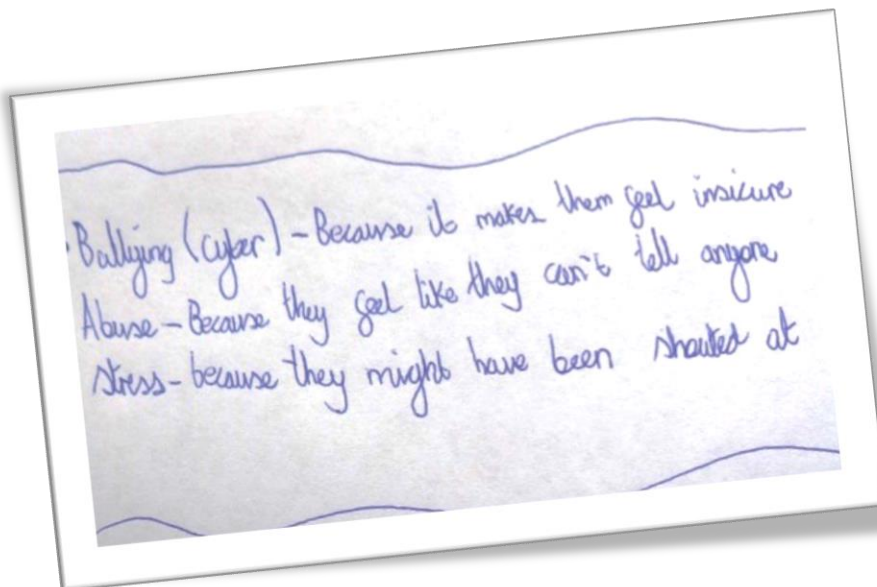 Bulliying (cyber) - Because it makes them feel insicure
Abuse - Because they feel like they can't tell anyone
stress - because they might have been shouted at